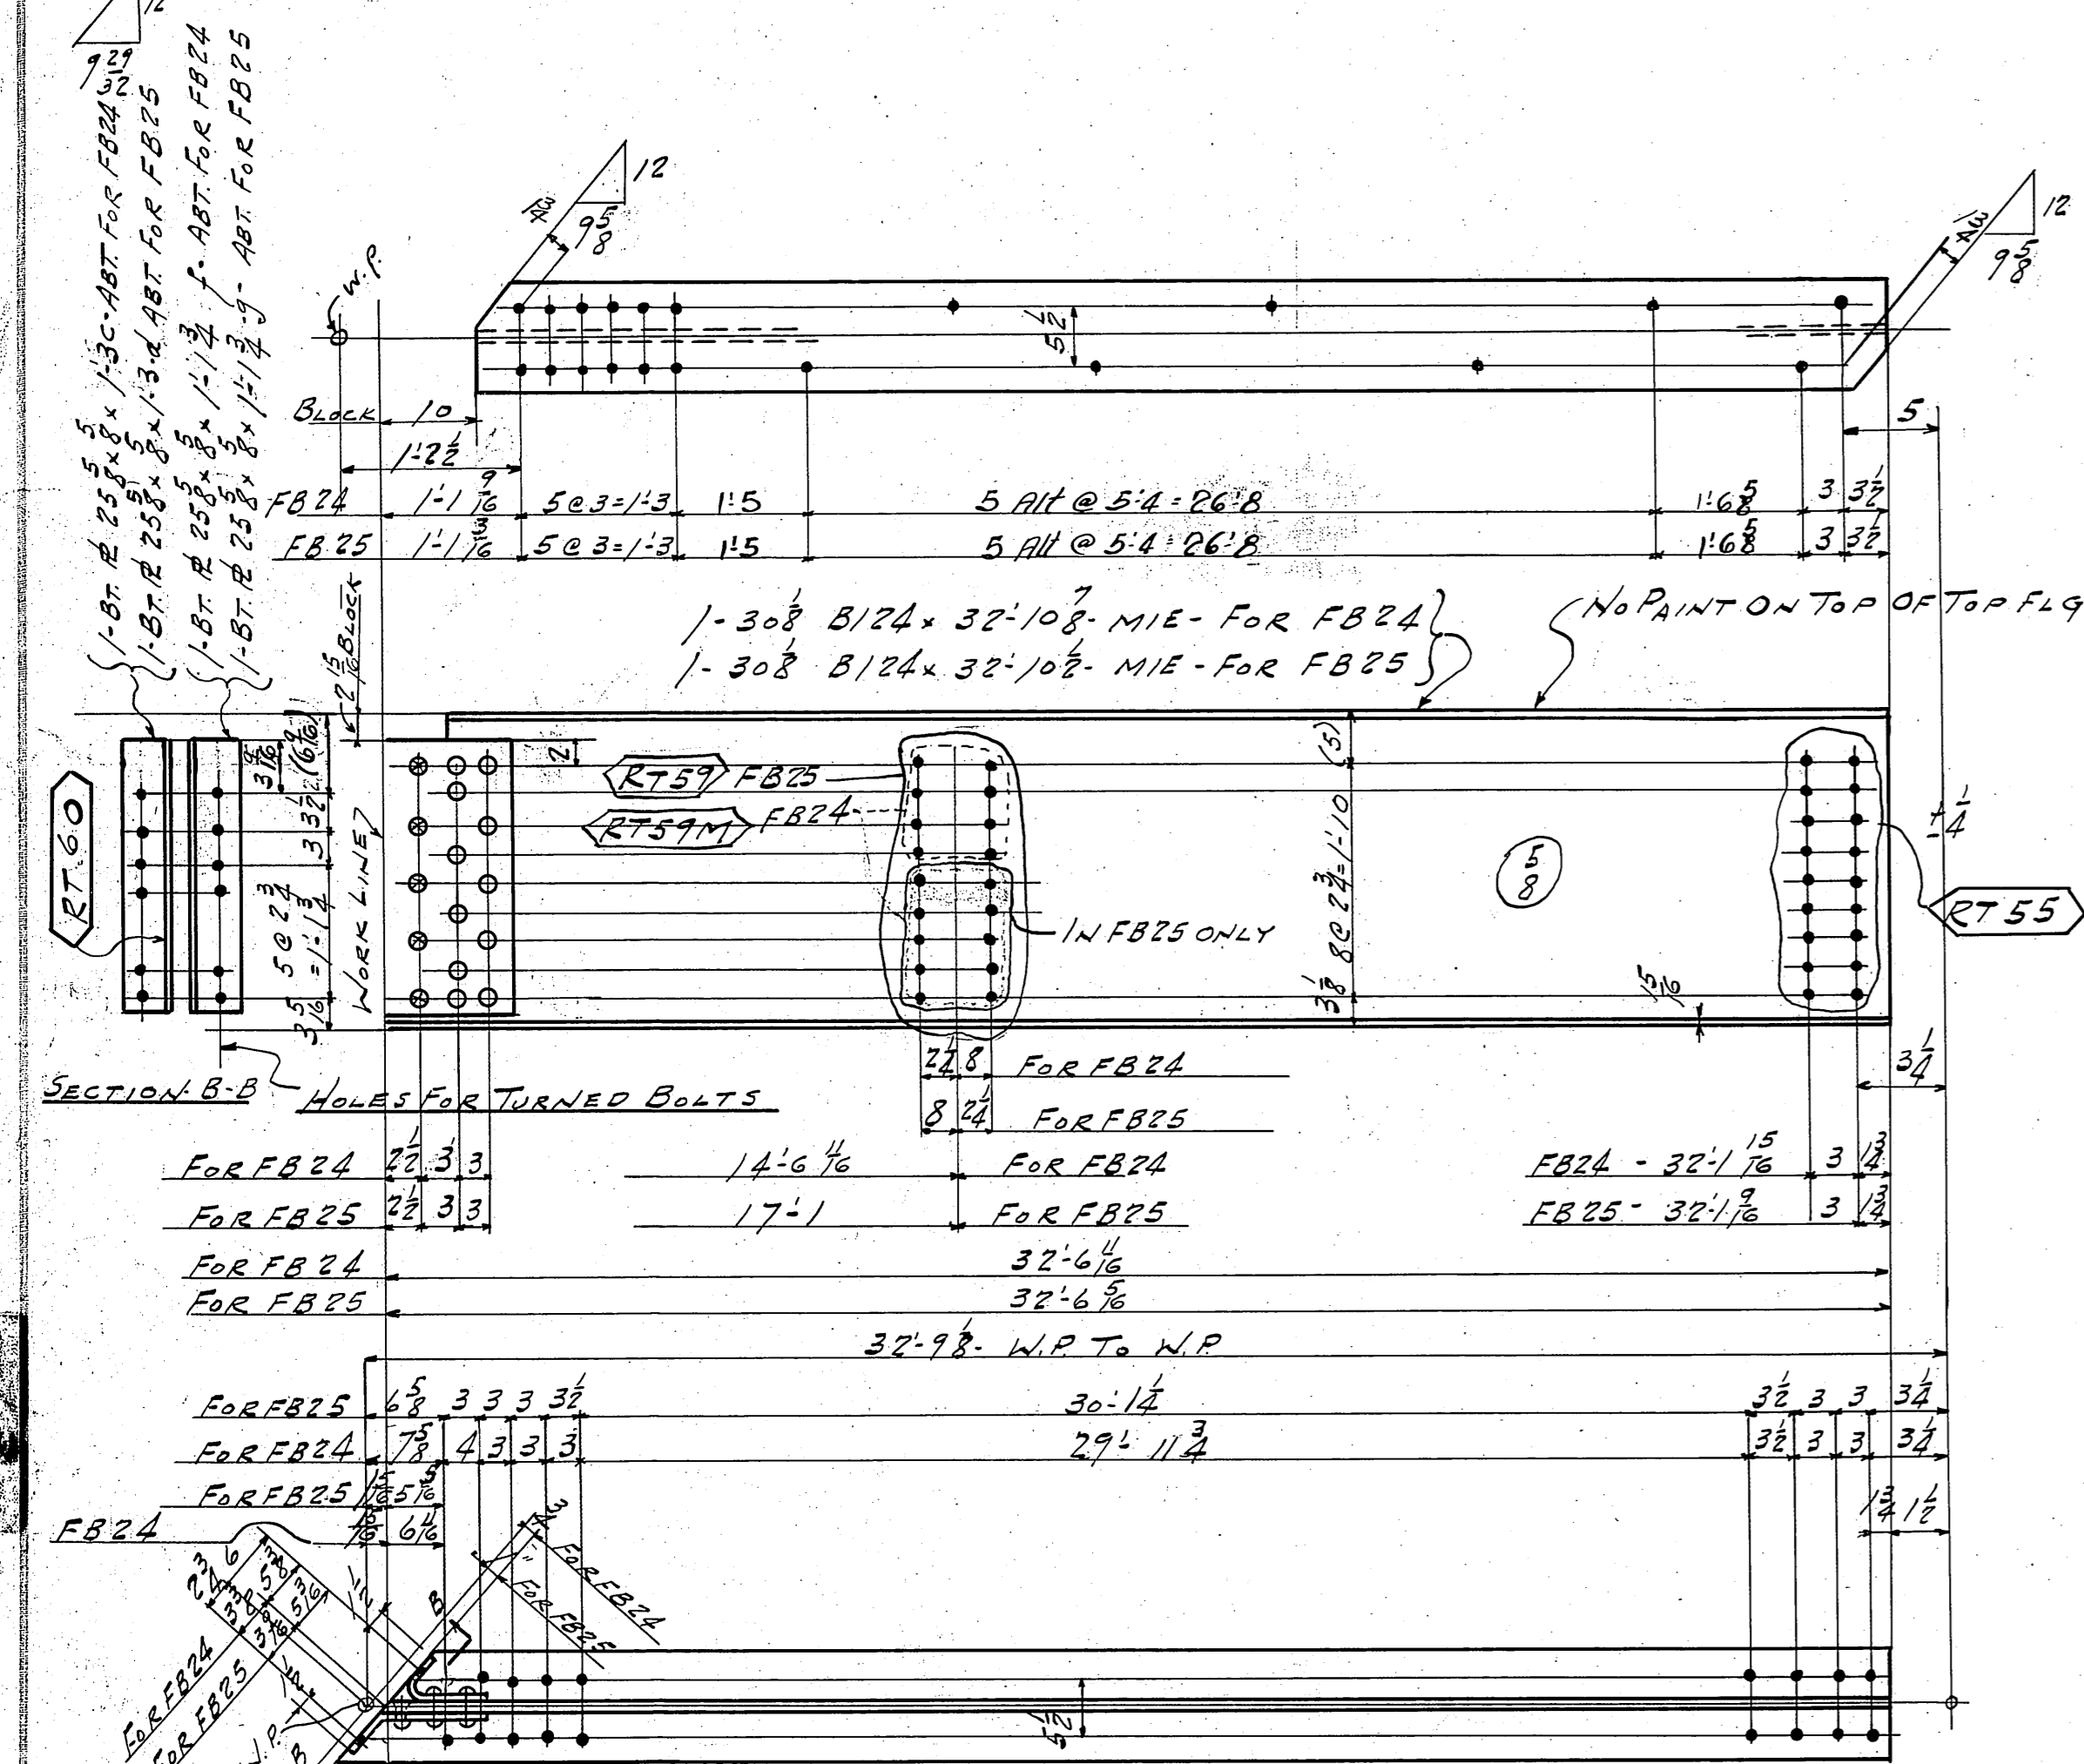 12
9 29/32
1-BT. PL 25 5/8 x 8 5/8 x 1'-3 C-ABT. FOR FB24
1-BT. PL 25 5/8 x 8 5/8 x 1'-3-d ABT FOR FB25
1-BT. PL 25 5/8 x 8 5/8 x 1'-1 3/4 f- ABT. FOR FB24
1-BT. PL 25 5/8 x 8 5/8 x 1'-1 3/4 -g- ABT FOR FB25
12
9 5/8
1 3/4
12
9 5/8
1 3/4
W.P.
5 1/2
BLOCK 10
5
1'-2 1/2
FB 24 1'-1 9/16 5@3=1'-3 1'-5 5 Alt @ 5'-4 = 26'-8 1'-6 5/8 3 3 1/2
FB 25 1'-1 3/16 5@3=1'-3 1'-5 5 Alt @ 5'-4 = 26'-8 1'-6 5/8 3 3 1/2
1- 30 1/8 B124 x 32'-10 7/8 - MIE - FOR FB24
1- 30 1/8 B124 x 32'-10 1/2 - MIE - FOR FB25
NO PAINT ON TOP OF TOP FLG
2 15/16 BLOCK
3 9/16
(6 9/16)
2
3 1/2
3
5@2 3/4 =1'-1 3/4
3 5/16
WORK LINE
2
RT 60
RT59 FB25
RT59M FB24
IN FB25 ONLY
(5)
8@2 3/4=1'-10
3 1/8
5/8
15/16
+ 1/4
-
RT 55
SECTION. B-B
HOLES FOR TURNED BOLTS
2 1/4 8 FOR FB24
8 2 1/4 FOR FB25
3 1/4
FOR FB24 2 1/2 3 3 14'-6 11/16 FOR FB24 FB24 - 32'-1 15/16 3 1 3/4
FOR FB25 2 1/2 3 3 17'-1 FOR FB25 FB25 - 32'-1 9/16 3 1 3/4
FOR FB24 32'-6 11/16
FOR FB25 32'-6 5/16
32'-9 1/8 - W.P. TO W.P.
FOR FB25 6 5/8 3 3 3 3 1/2 30'-1 1/4 3 1/2 3 3 3 1/4
FOR FB24 7 5/8 4 3 3 3 29'-11 3/4 3 1/2 3 3 3 1/4
FOR FB25 1 5/16 5 5/16
FB24 6 11/16
1 3/4 1 1/2
FOR FB24
FOR FB25
B
FOR FB24
FOR FB25
B
5 1/2